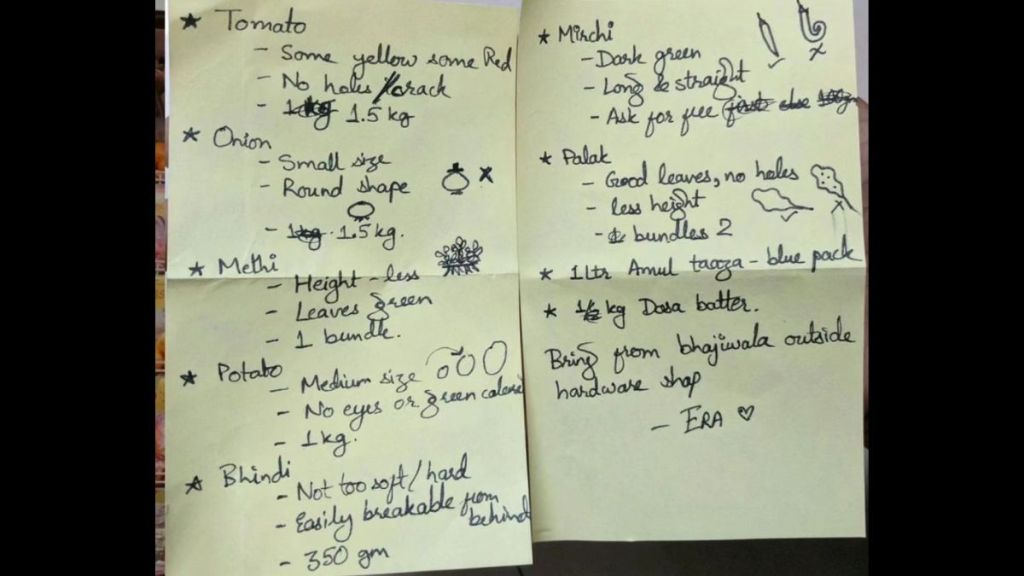 * Tomato
- Some yellow some Red
- No holes/crack
- 1.5 kg
* Onion
- Small size
- Round shape
x
- 1kg 1.5 kg.
* Methi
- Height - less
- Leaves green
- 1 bundle.
* Potato
- Medium size
- No eyes or green
- 1 kg.
* Bhindi
- Not too soft/hard
- Easily breakable from
behind
- 350 gm
* Mirchi
- Dark green
- Long & straight
- Ask for free first else 100gm
* Palak
- Good leaves, no holes
- less height
- bundles 2
* 1 ltr Amul taaza - blue pack
* 1/2 kg Dosa batter.
Bring from bhajiwala outside
hardware shop
- ERA ♡